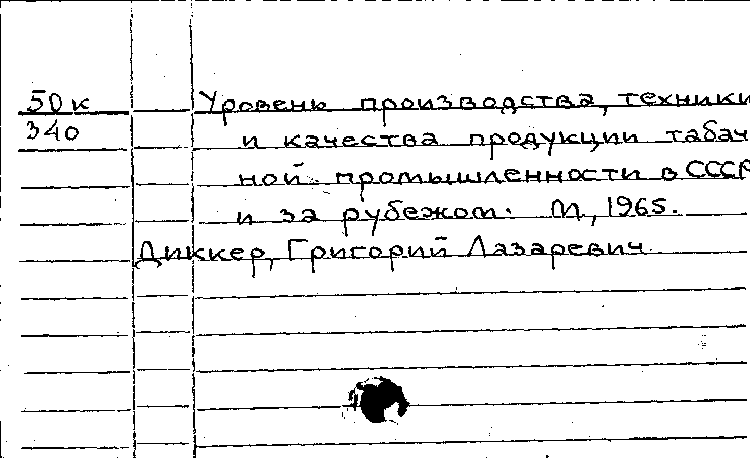 50к
340
Уровень производства, техники
и качества продукции табач
ной промышленности в СССР
и за рубежом. М., 1965.
Диккер, Григорий Лазаревич